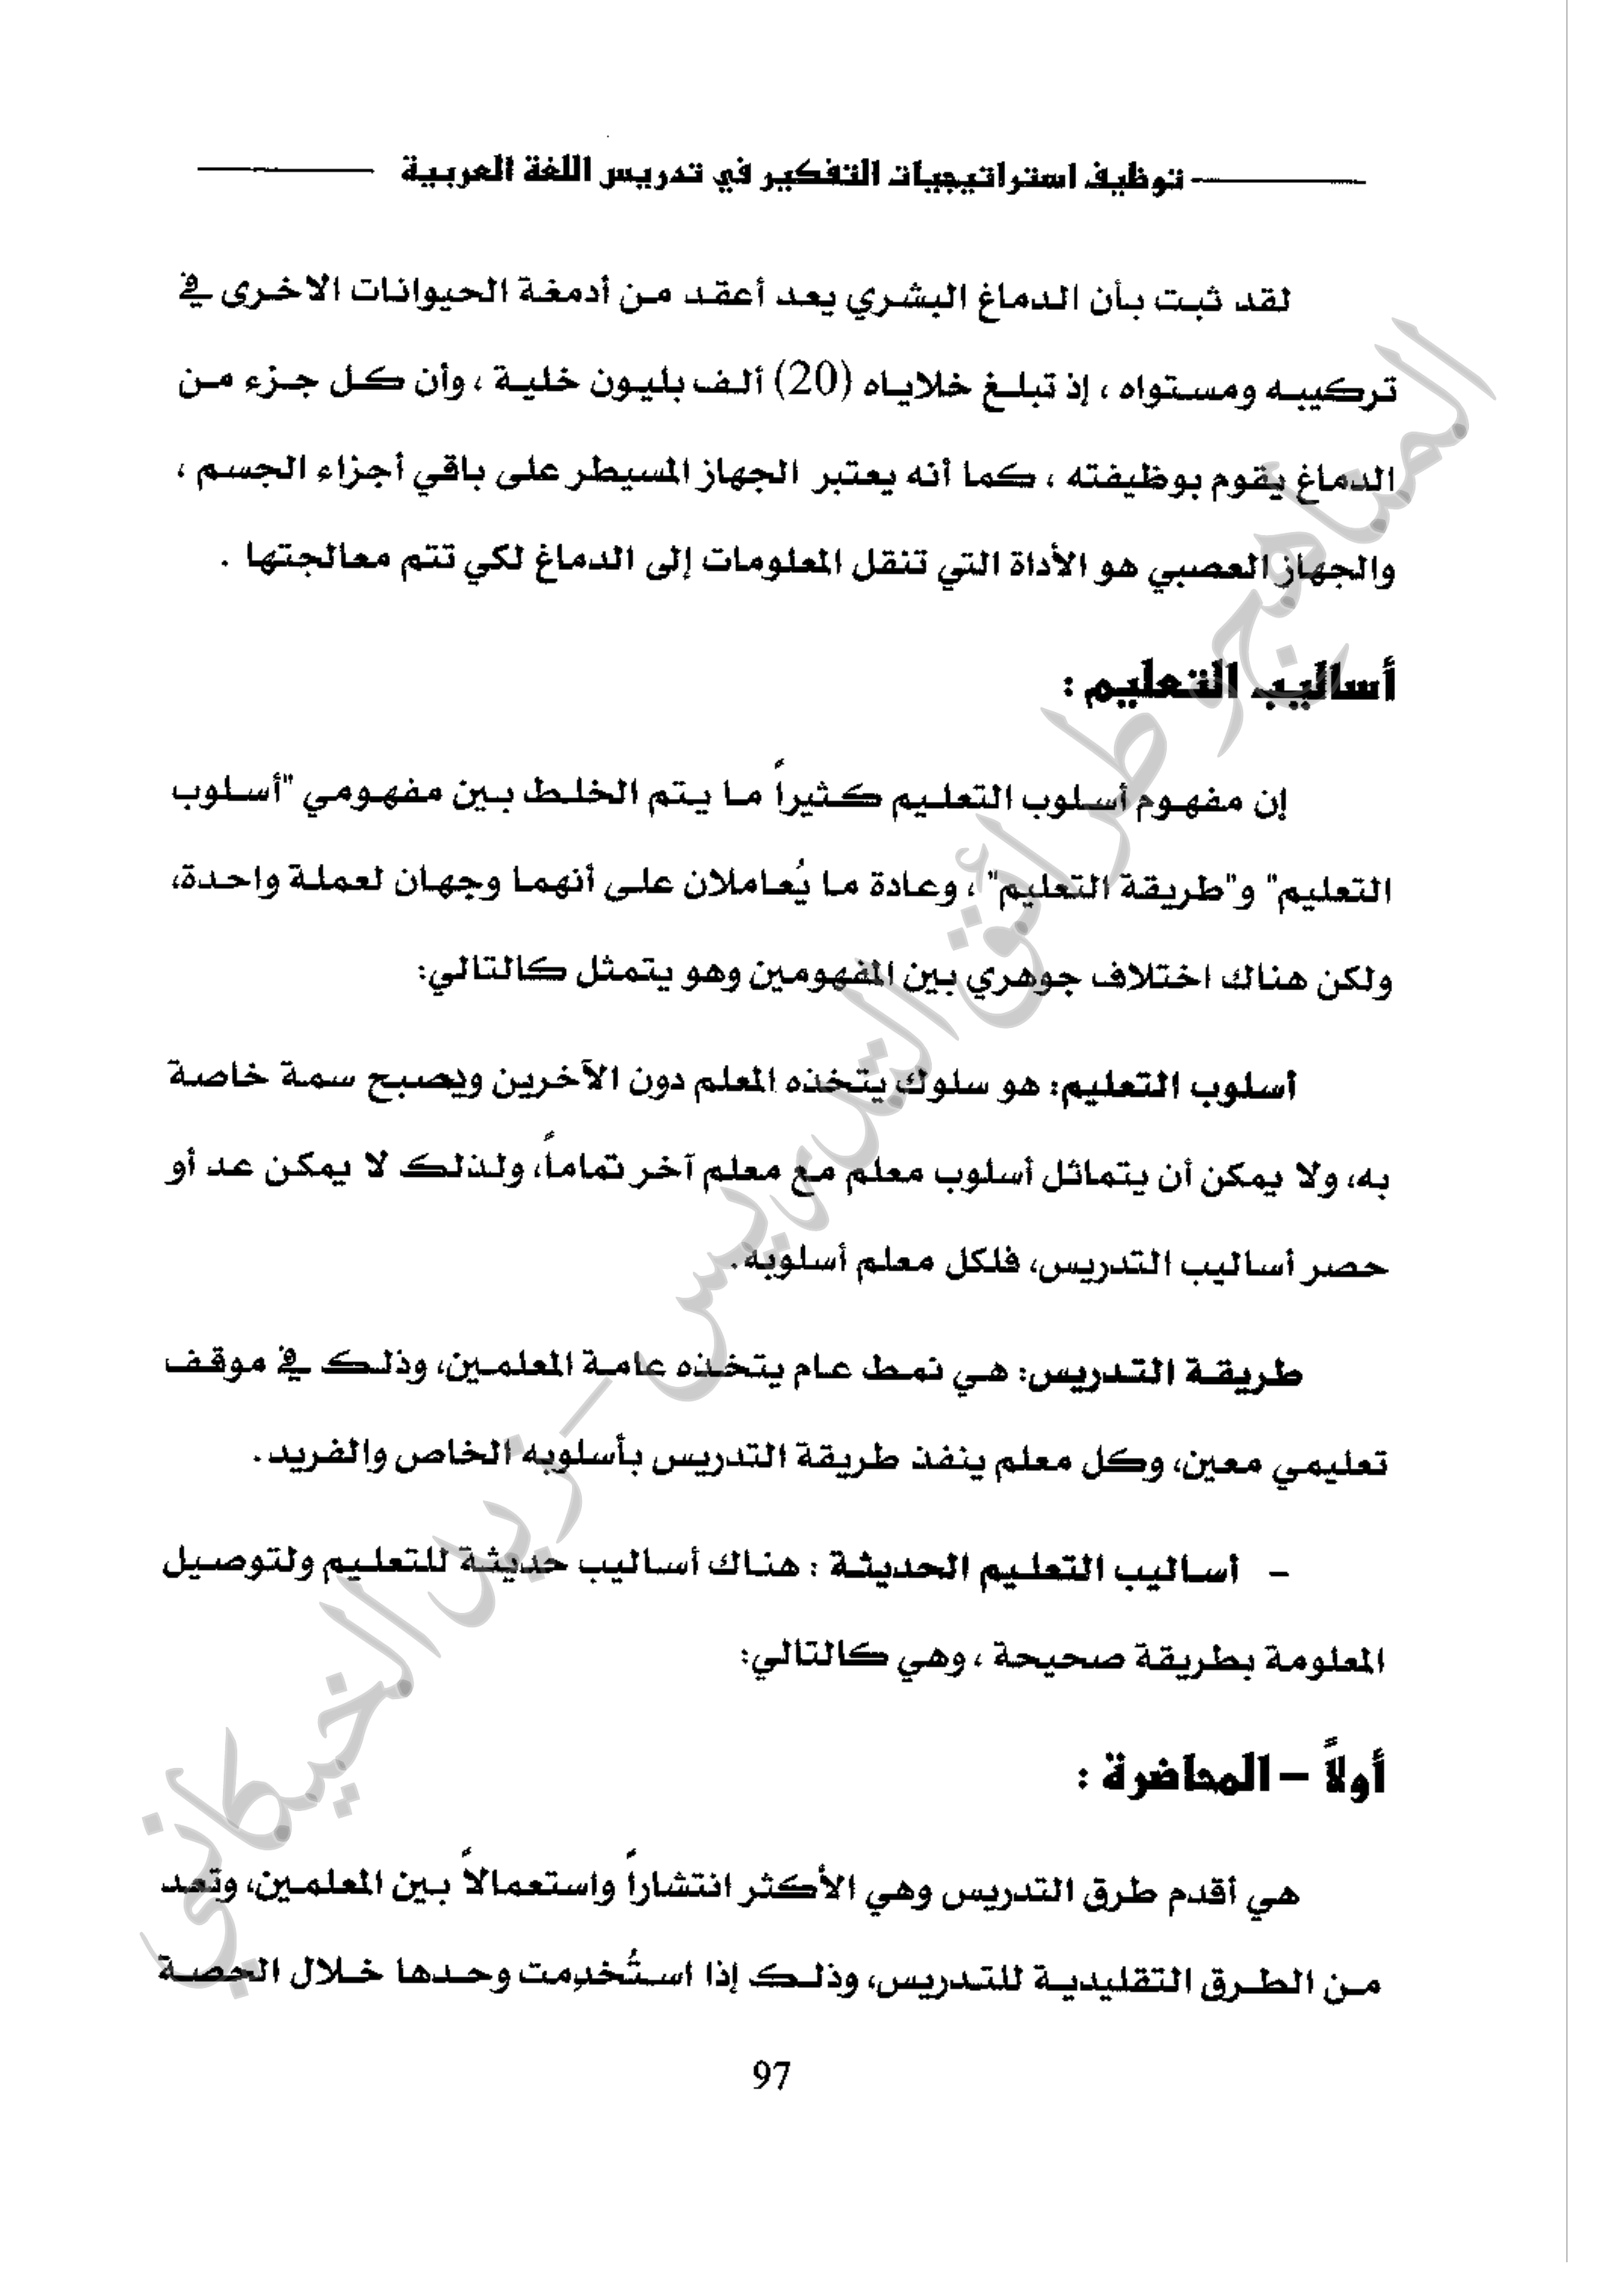 توظيف استراتيجيات التفكير في تدريس اللغة العربية
لقد ثبت بأن الدماغ البشري يعد أعقد من أدمغة الحيوانات الاخرى في
تركيبه ومستواه ، إذ تبلغ خلاياه (20) ألف بليون خلية ، وأن كل جزء من
الدماغ يقوم بوظيفته ، كما أنه يعتبر الجهاز المسيطر على باقي أجزاء الجسم ،
والجهاز العصبي هو الأداة التي تنقل المعلومات إلى الدماغ لكي تتم معالجتها .
أساليب التعليم :
إن مفهوم أسلوب التعليم كثيراً ما يتم الخلط بين مفهومي "أسلوب
التعليم" و"طريقة التعليم" ، وعادة ما يُعاملان على أنهما وجهان لعملة واحدة،
ولكن هناك اختلاف جوهري بين المفهومين وهو يتمثل كالتالي:
أسلوب التعليم: هو سلوك يتخذه المعلم دون الآخرين ويصبح سمة خاصة
به، ولا يمكن أن يتماثل أسلوب معلم مع معلم آخر تماماً، ولذلك لا يمكن عد أو
حصر أساليب التدريس، فلكل معلم أسلوبه.
طريقة التدريس: هي نمط عام يتخذه عامة المعلمين، وذلك في موقف
تعليمي معين، وكل معلم ينفذ طريقة التدريس بأسلوبه الخاص والفريد.
- أساليب التعليم الحديثة : هناك أساليب حديثة للتعليم ولتوصيل
المعلومة بطريقة صحيحة ، وهي كالتالي:
أولاً – المحاضرة :
هي أقدم طرق التدريس وهي الأكثر انتشاراً واستعمالاً بين المعلمين، وتعد
من الطرق التقليدية للتدريس، وذلك إذا استُخدِمت وحدها خلال الحصة
97
المناهج وطرائق التدريس – زيد الخيكاني